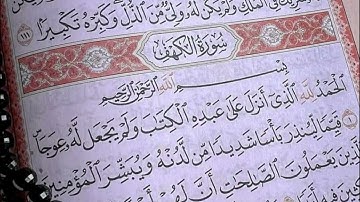 شَرِيكٌ فِي ٱلۡمُلۡكِ وَلَمۡ يَكُن لَّهُۥ وَلِيّٞ مِّنَ ٱلذُّلِّۖ وَكَبِّرۡهُ تَكۡبِيرَۢا ١١١
سُورَةُ الكَهۡفِ
بِسۡمِ ٱللَّهِ ٱلرَّحۡمَٰنِ ٱلرَّحِيمِ
ٱلۡحَمۡدُ لِلَّهِ ٱلَّذِيٓ أَنزَلَ عَلَىٰ عَبۡدِهِ ٱلۡكِتَٰبَ وَلَمۡ يَجۡعَل لَّهُۥ عِوَجَاۜ ١
قَيِّمٗا لِّيُنذِرَ بَأۡسٗا شَدِيدٗا مِّن لَّدُنۡهُ وَيُبَشِّرَ ٱلۡمُؤۡمِنِينَ
ٱلَّذِينَ يَعۡمَلُونَ ٱلصَّٰلِحَٰتِ أَنَّ لَهُمۡ